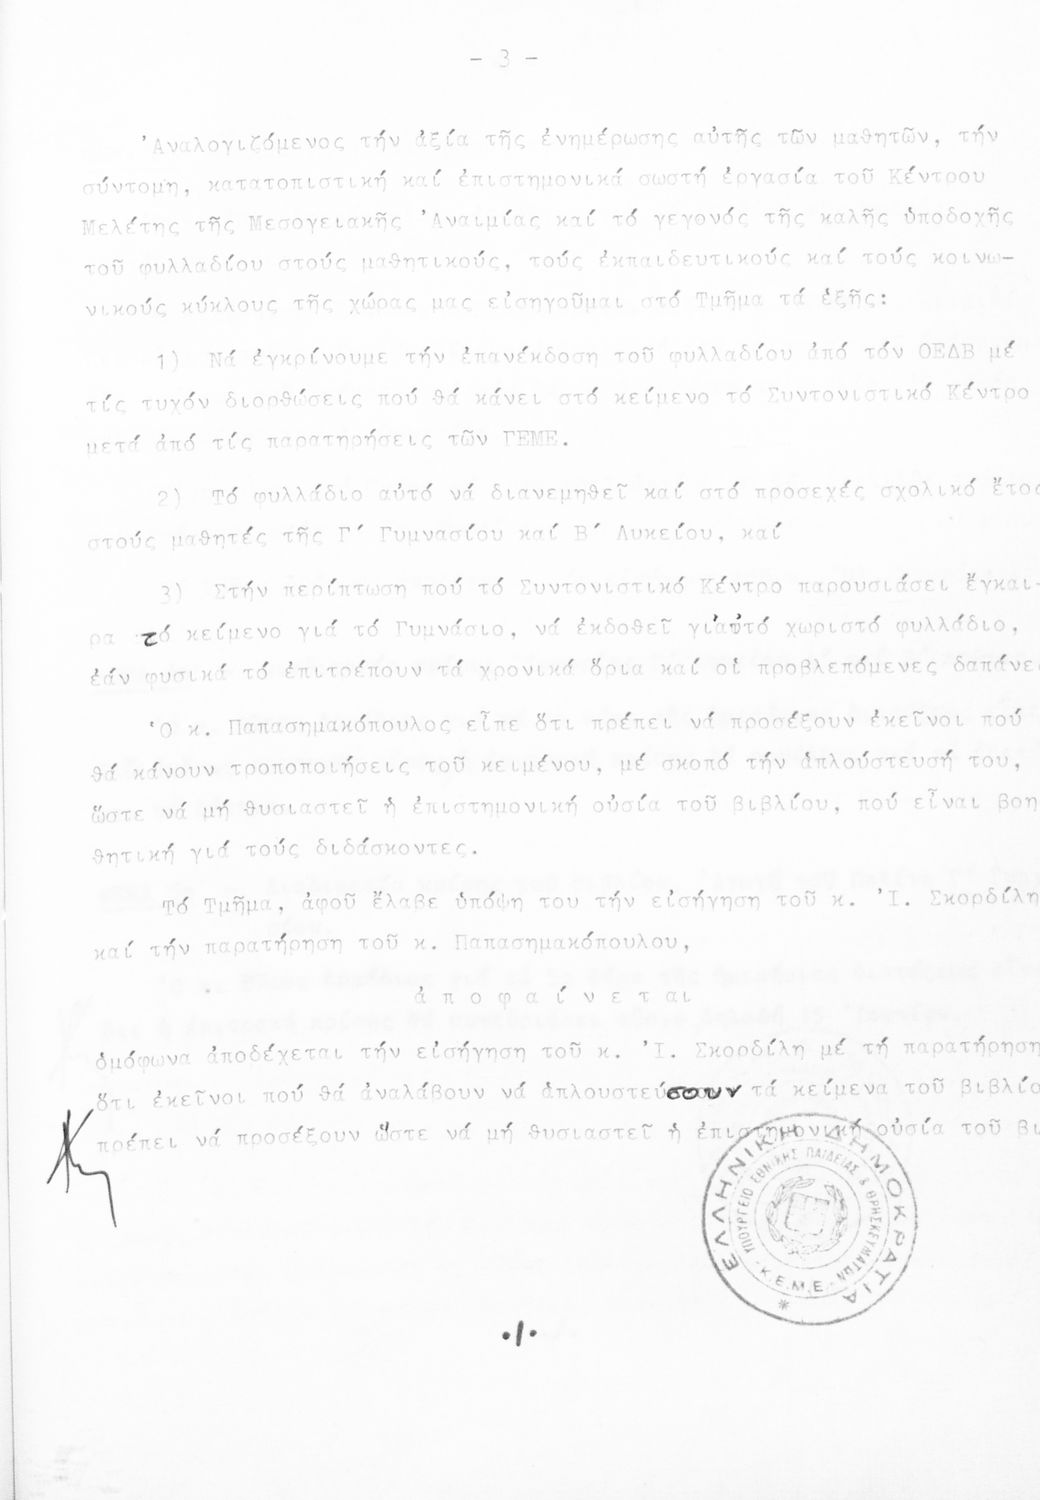 - 3 -
Ἀναλογιζόμενος τήν ἀξία τῆς ἐνημέρωσης αὐτῆς τῶν μαθητῶν, τήν
σύντομη, κατατοπιστική καί ἐπιστημονικά σωστή ἐργασία τοῦ Κέντρου
Μελέτης τῆς Μεσογειακῆς Ἀναιμίας καί τό γεγονός τῆς καλῆς ὑποδοχῆς
τοῦ φυλλαδίου στούς μαθητικούς, τούς ἐκπαιδευτικούς καί τούς κοινω-
νικούς κύκλους τῆς χώρας μας εἰσηγοῦμαι στό Τμῆμα τά ἑξῆς:
1) Νά ἐγκρίνουμε τήν ἐπανέκδοση τοῦ φυλλαδίου ἀπό τόν ΟΕΔΒ μέ
τίς τυχόν διορθώσεις πού θά κάνει στό κείμενο τό Συντονιστικό Κέντρο
μετά ἀπό τίς παρατηρήσεις τῶν ΓΕΜΕ.
2) Τό φυλλάδιο αὐτό νά διανεμηθεῖ καί στό προσεχές σχολικό ἔτος
στούς μαθητές τῆς Γ΄ Γυμνασίου καί Β΄ Λυκείου, καί
3) Στήν περίπτωση πού τό Συντονιστικό Κέντρο παρουσιάσει ἔγκαι-
ρα τό κείμενο γιά τό Γυμνάσιο, νά ἐκδοθεῖ γι'αὐτό χωριστό φυλλάδιο,
ἐάν φυσικά τό ἐπιτρέπουν τά χρονικά ὅρια καί οἱ προβλεπόμενες δαπάνε
Ὁ κ. Παπασημακόπουλος εἶπε ὅτι πρέπει νά προσέξουν ἐκεῖνοι πού
θά κάνουν τροποποιήσεις τοῦ κειμένου, μέ σκοπό τήν ἁπλούστευσή του,
ὥστε νά μή θυσιαστεῖ ἡ ἐπιστημονική οὐσία τοῦ βιβλίου, πού εἶναι βοη
θητική γιά τούς διδάσκοντες.
Τό Τμῆμα, ἀφοῦ ἔλαβε ὑπόψη του τήν εἰσήγηση τοῦ κ. Ἰ. Σκορδίλη
καί τήν παρατήρηση τοῦ κ. Παπασημακόπουλου,
ἀ π ο φ α ί ν ε τ αι
ὁμόφωνα ἀποδέχεται τήν εἰσήγηση τοῦ κ. Ἰ. Σκορδίλη μέ τή παρατήρηση
ὅτι ἐκεῖνοι πού θά ἀναλάβουν νά ἁπλουστεύσουν τά κείμενα τοῦ βιβλίο
πρέπει νά προσέξουν ὥστε νά μή θυσιαστεῖ ἡ ἐπιστημονική οὐσία τοῦ βι
ΕΛΛΗΝΙΚΗ ΔΗΜΟΚΡΑΤΙΑ
ΥΠΟΥΡΓΕΙΟ ΕΘΝΙΚΗΣ ΠΑΙΔΕΙΑΣ & ΘΡΗΣΚΕΥΜΑΤΩΝ
Κ.Ε.Μ.Ε.
./.